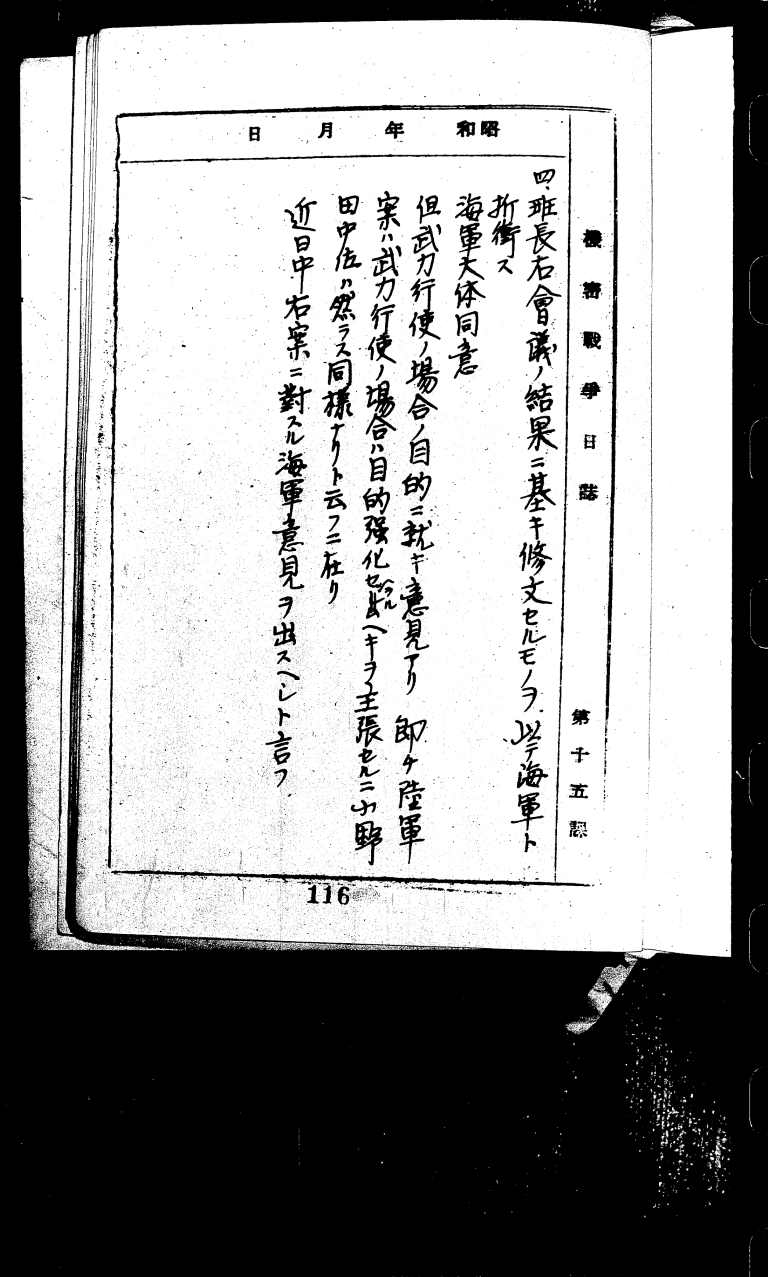 機密戰爭日誌 第十五課
昭和 年 月 日
四、班長右會議ノ結果ニ基キ修文セルモノヲ以テ海軍ト
折衝ス
海軍大体同意
但武力行使ノ場合ノ目的ニ就キ意見アリ 即チ陸軍
案ハ武力行使ノ場合ハ目的強化セラルヘキヲ主張セルニ小野
田中佐ハ然ラス同様ナリト云フニ在リ
近日中右案ニ對スル海軍意見ヲ出スヘシト言フ
116